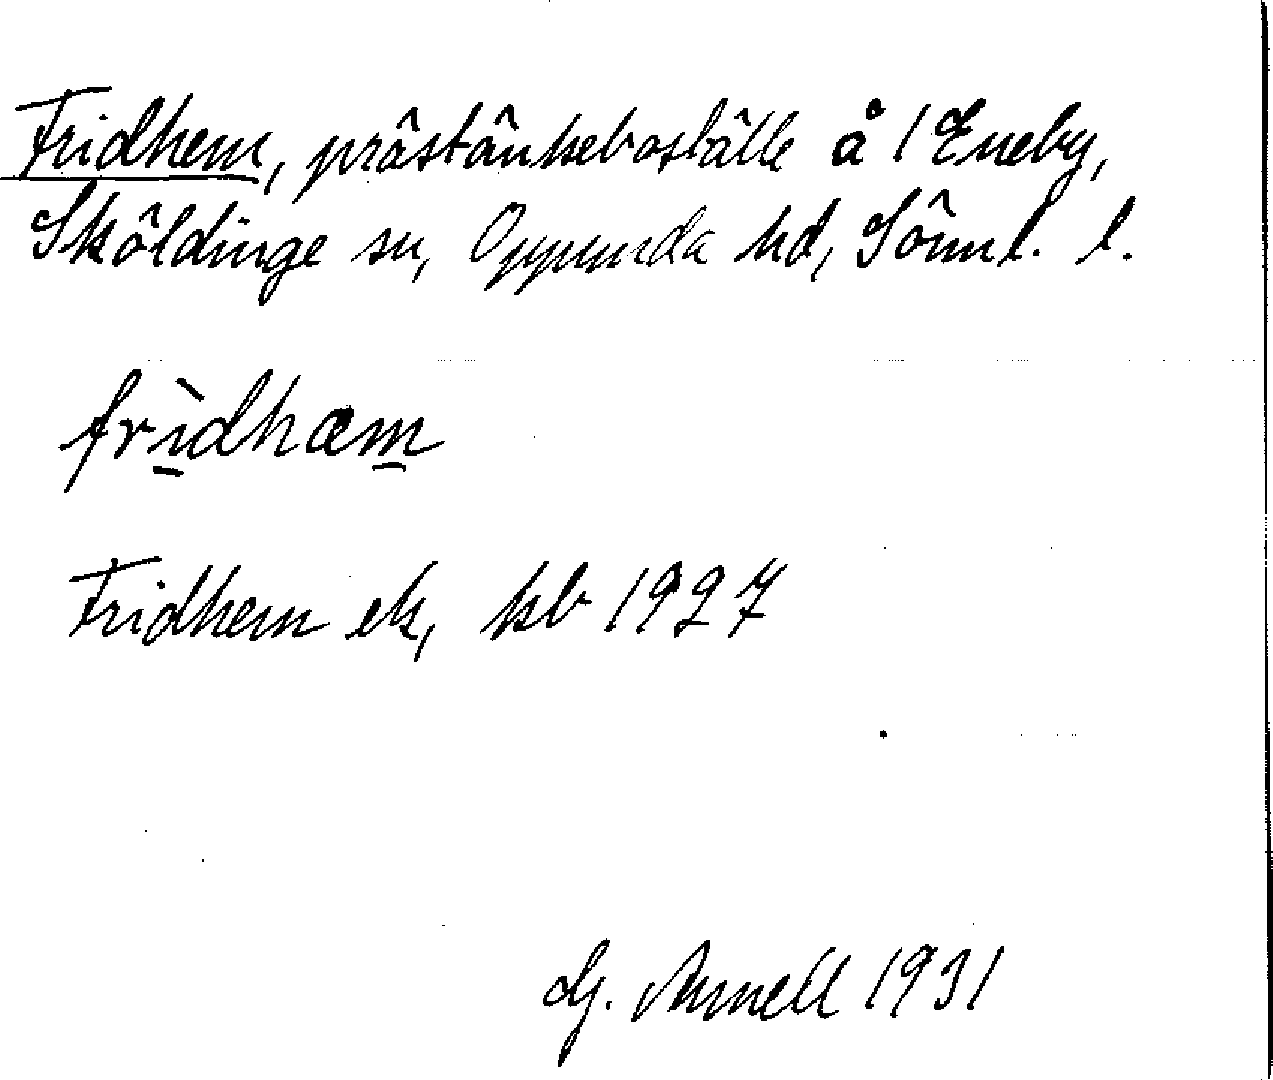 Fridhem, prästänkeboställe å 1 Eneby,
Sköldinge sn, Oppunda hd, Sörml. l.
frìdhæm
Fridhem ek, kb 1927
G. Arnell 1931